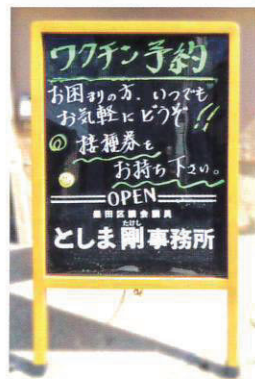 ワクチン予約
お困りの方、いつでも
お気軽にどうぞ!!
@ 接種券を
お持ち下さい。
OPEN
墨田区議会議員
たけし
としま剛事務所